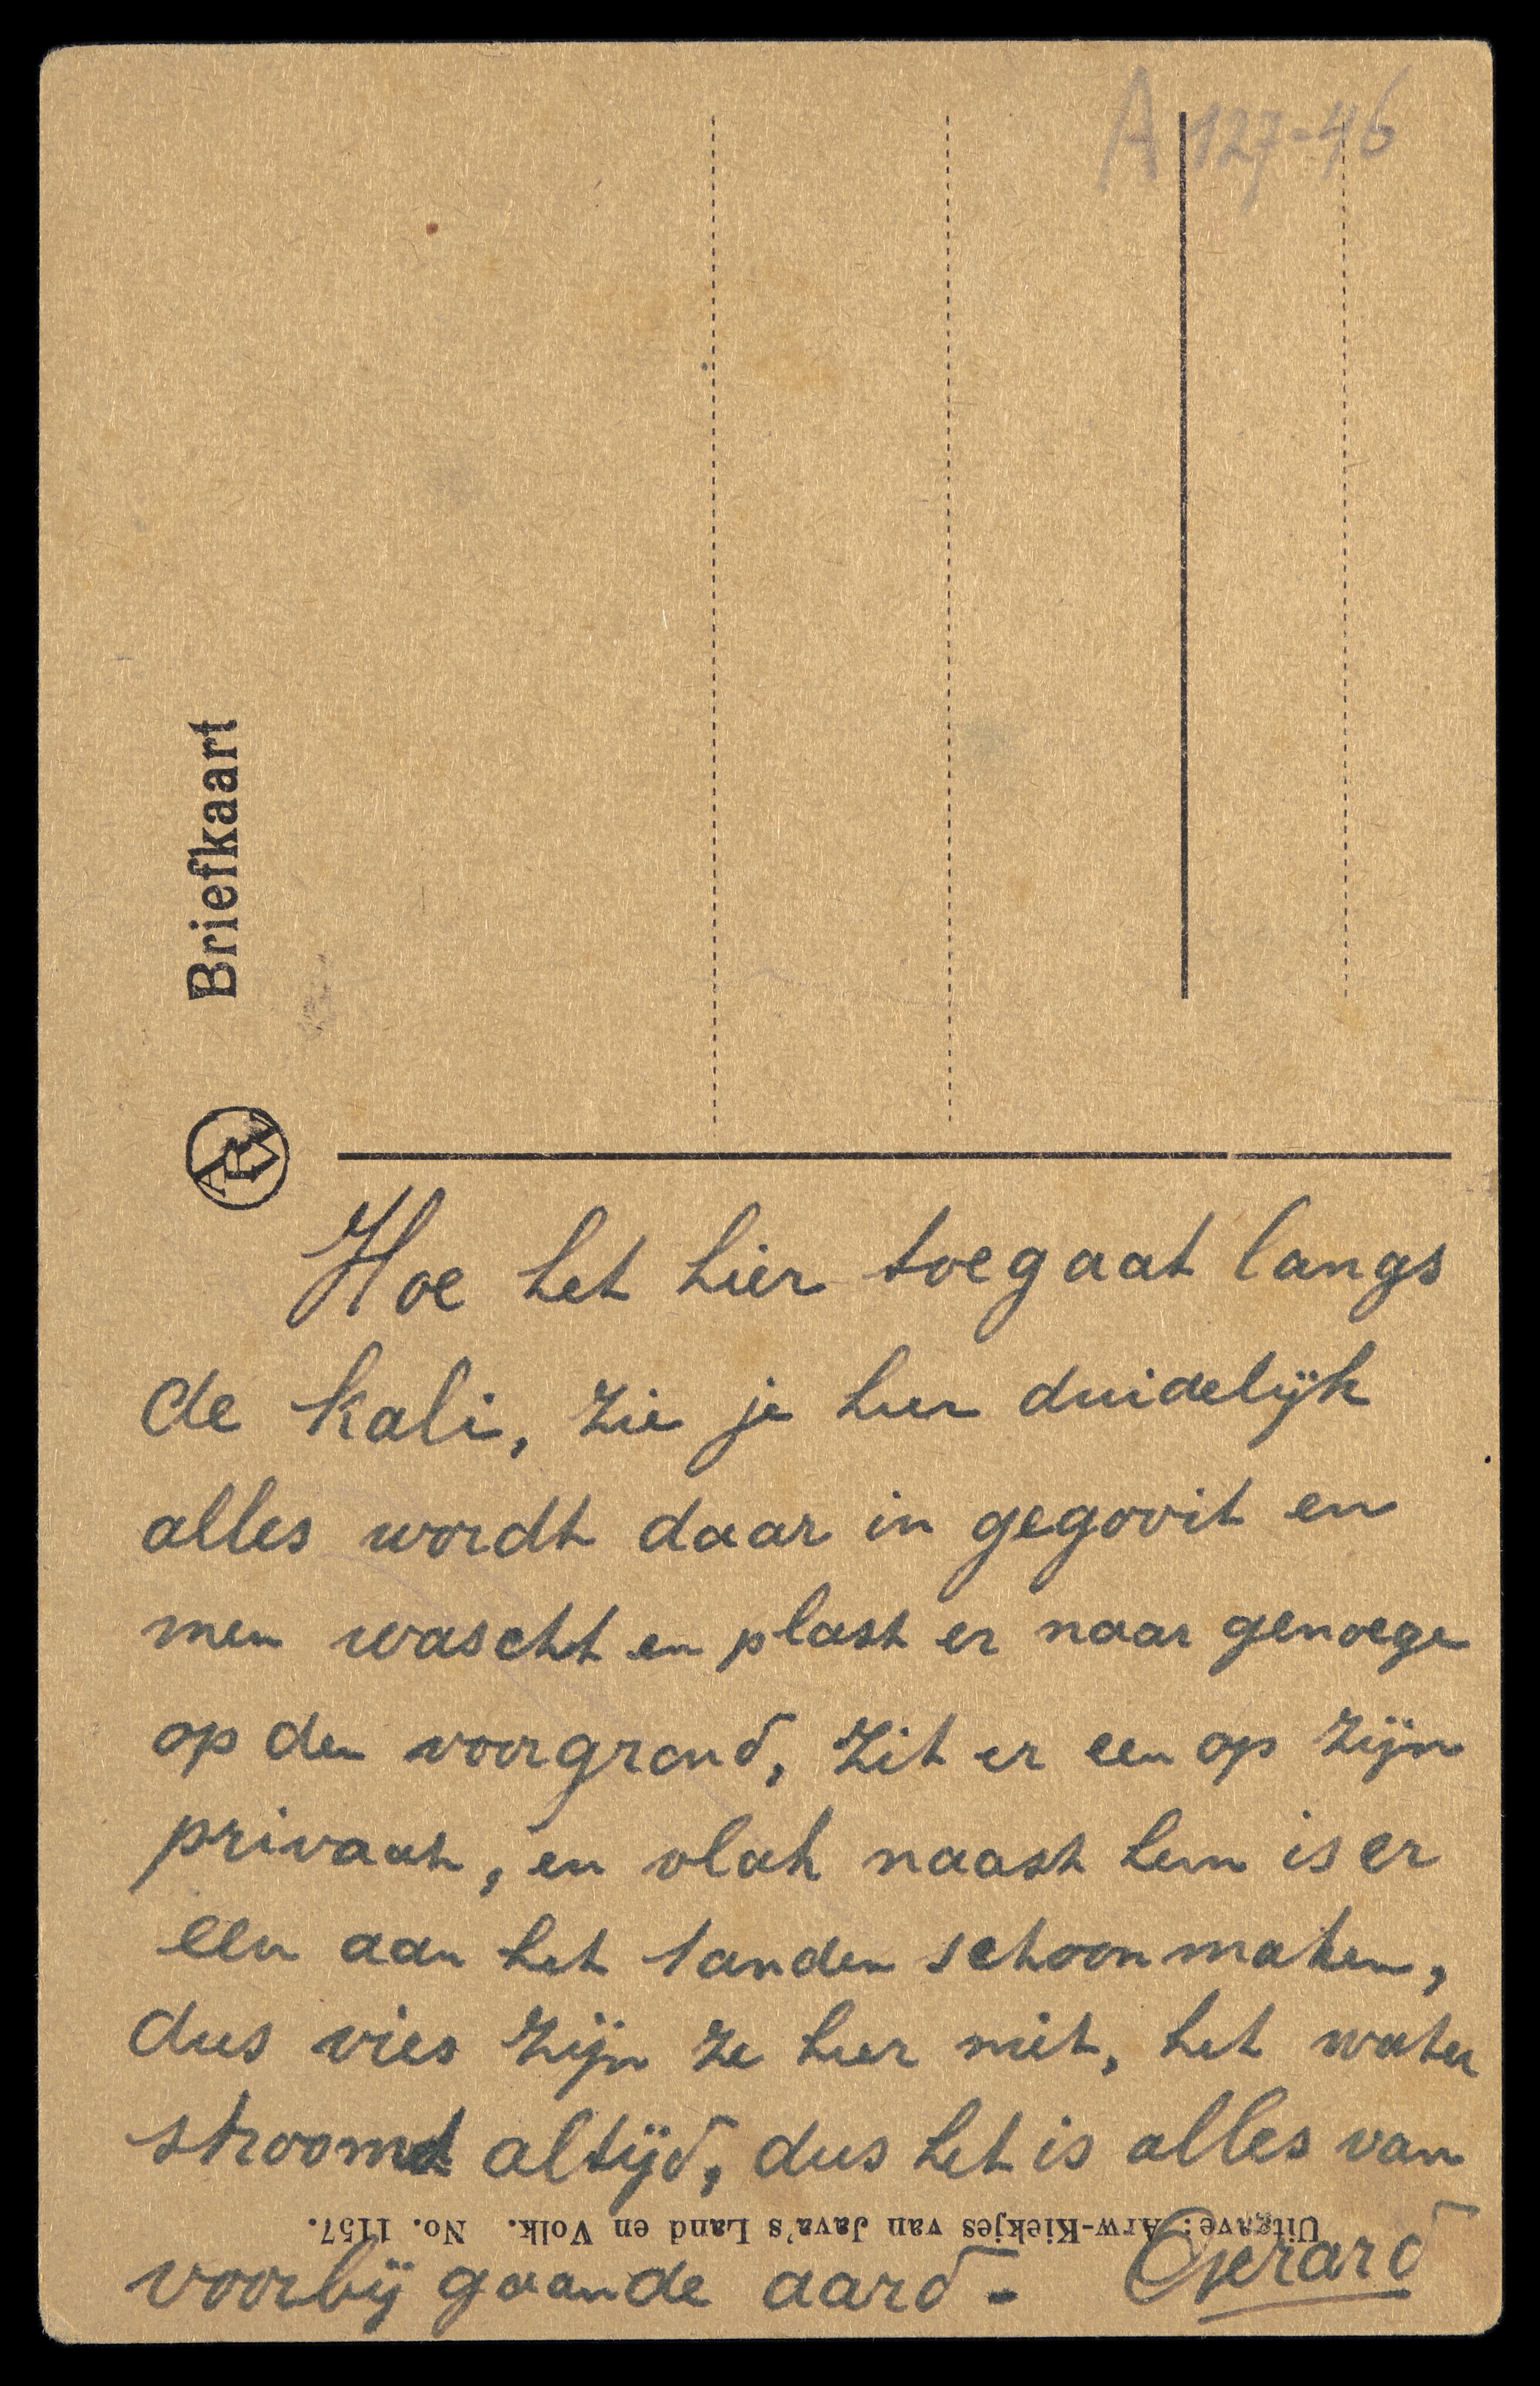 A 127-46
Briefkaart
ARW
Hoe het hier toegaat langs
de kali, zie je hier duidelijk
alles wordt daar in gegooit en
men wascht en plast er naar genoege
op den voorgrond, zit er een op zijn
privaat, en vlak naast hem is er
een aan het tanden schoonmaken,
dus vies zijn ze hier niet, het water
stroomd altijd, dus het is alles van
Uitgave: Arw-Kiekjes van Java's Land en Volk. No. 1157.
voorbij gaande aard - Gerard